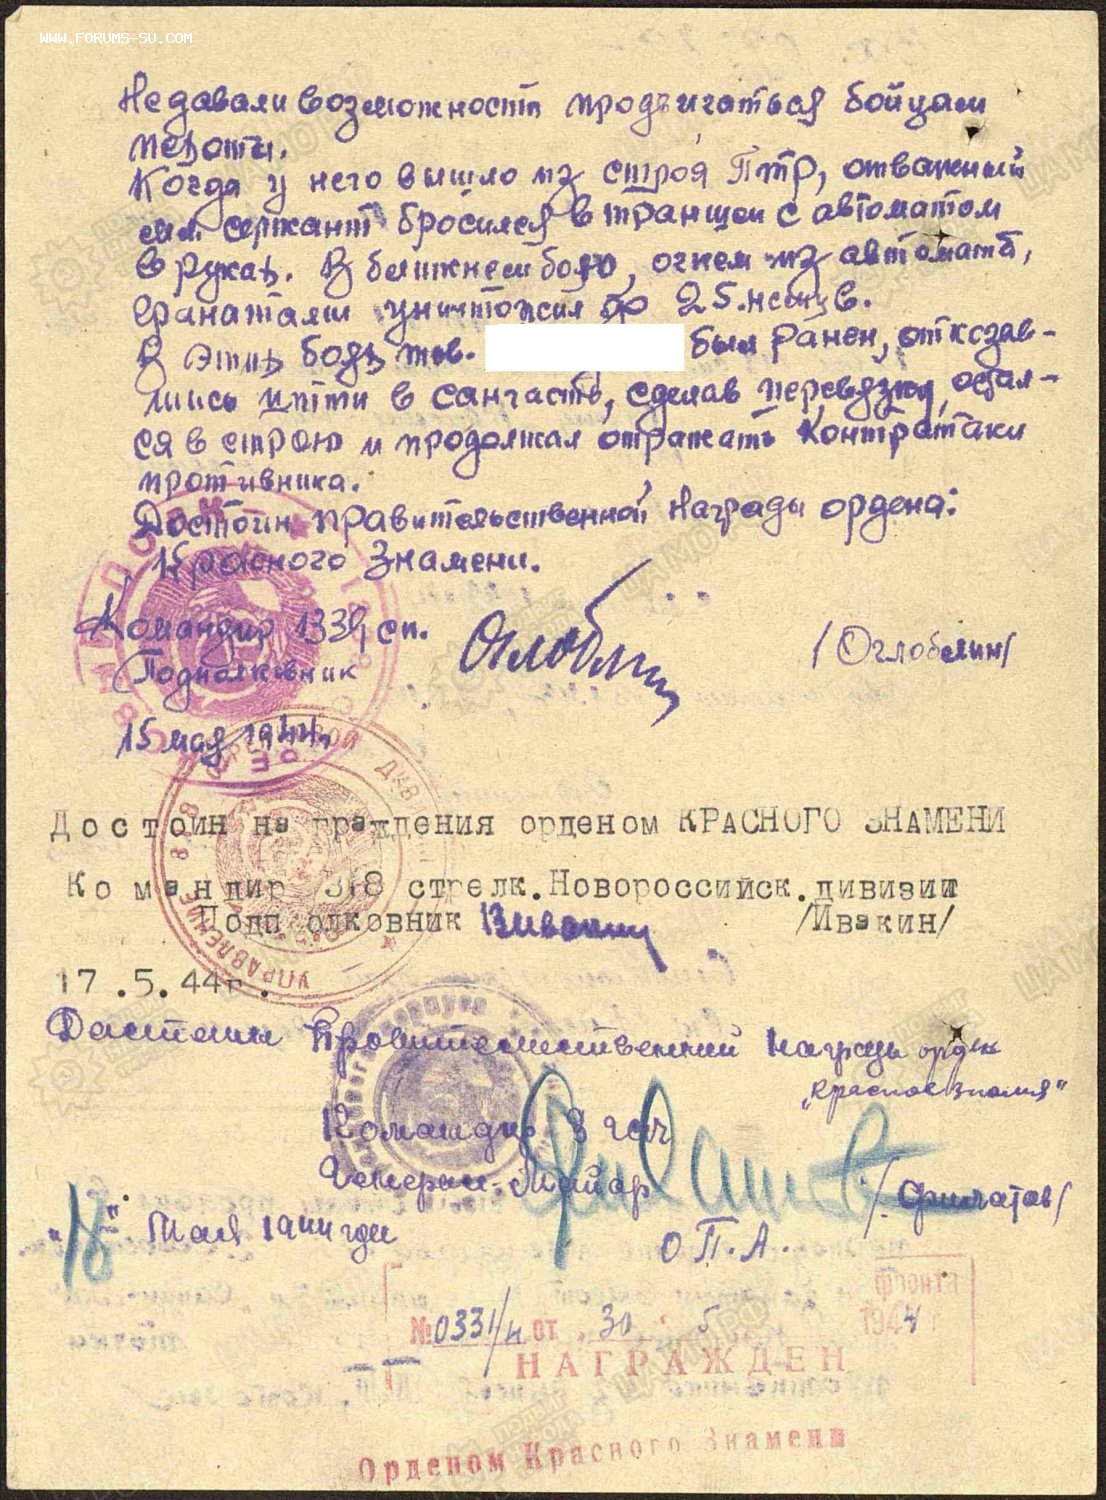 WWW.FORUMS-SU.COM
Не давали возможность продвигаться бойцам
пехоты.
Когда у него вышло из строя Птр, отважный
мл. сержант бросился в траншеи с автоматом
в руках. В ближнем бою, огнем из автомата,
гранатами уничтожил до 25. немцев.
В этих боях тов. был ранен, отказав-
шись итти в санчасть, сделав перевязку, остал-
ся в строю и продолжал отражать контратаки
противника.
Достоин правительственной награды ордена:
Красного Знамени.
Командир 1339 сп.
Подполковник /Оглобелин/
15 мая 1944г.
Достоин награждения орденом КРАСНОГО ЗНАМЕНИ
Командир 318 стрелк.Новороссийск.дивизии
Подполковник /Ивакин/
17.5.44г.
Достоин Правительственной награды орден
„Красное Знамя"
Командир 3 гск
Генерал-Майор /Филатов/
"18" Мая 1944 года
О П.А.
фронта
№0331/н от „30" 5 1944
НАГРАЖДЕН
Орденом Красного Знамени